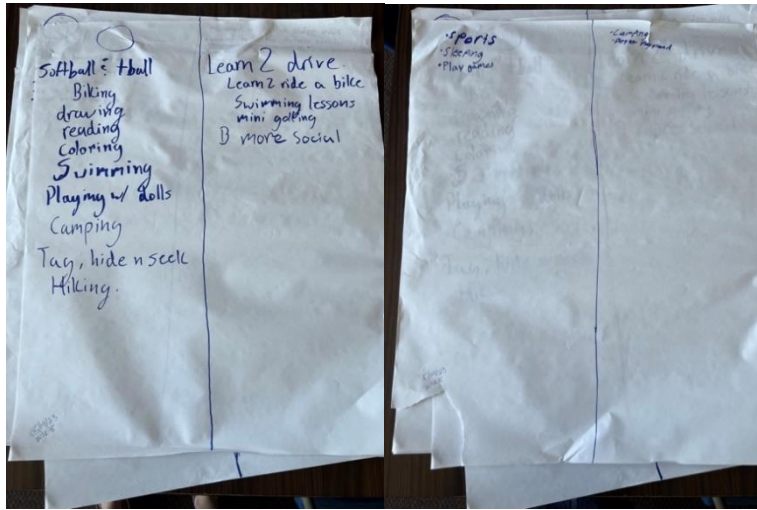 Softball & tball
Biking
drawing
reading
Coloring
Swimming
Playing w/ dolls
Camping
Tag, hide n seek
Hiking.
Learn 2 drive.
Learn 2 ride a bike
Swimming lessons
mini golfing
B more Social
• Sports
• Sleeping
• Play games
• Camping